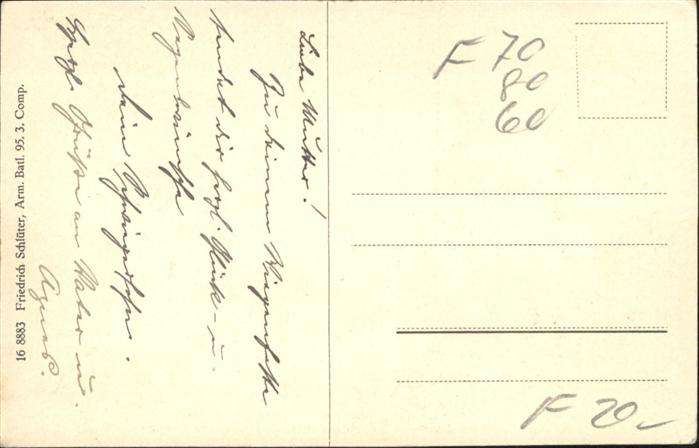 Liebe Mutter!
Zu deinem Wiegenfeste
sendet dir herzl. Glück- u.
Segenswünsche
dein Schwiegersohn.
Herzl. Grüße an Vater u.
Agnes.
16 8883 Friedrich Schlüter, Arm. Batl. 95. 3. Comp.
F 70
80
60
F 20,-